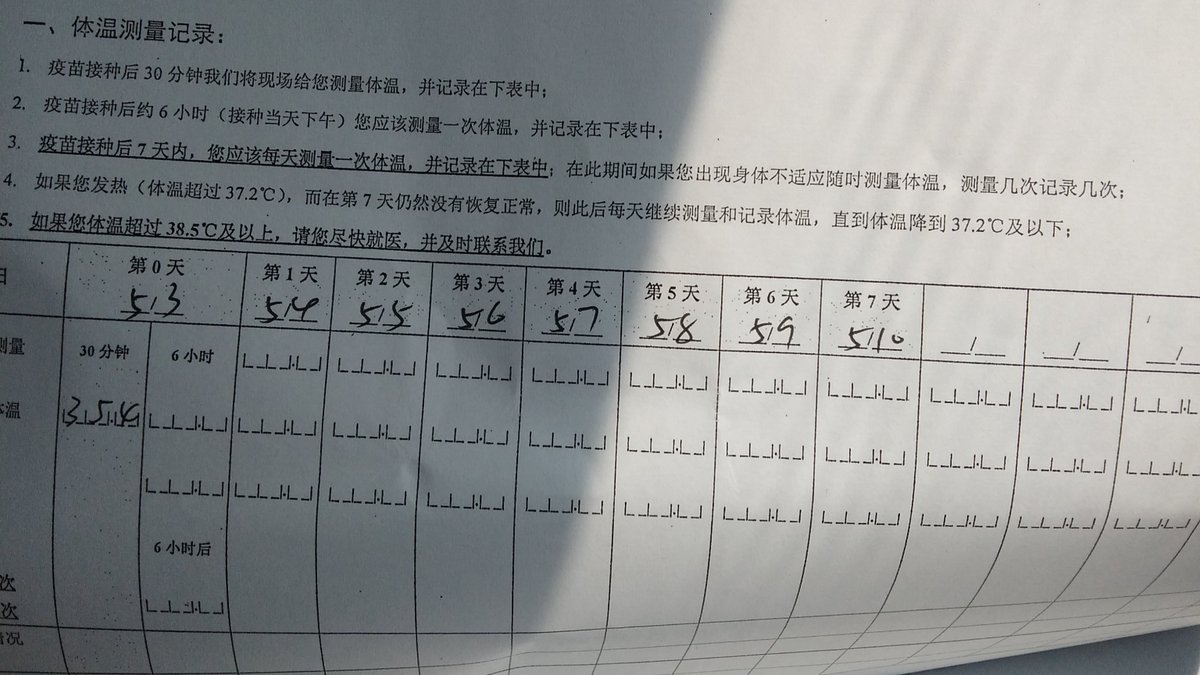 一、体温测量记录：
1. 疫苗接种后30分钟我们将现场给您测量体温，并记录在下表中；
2. 疫苗接种后约6小时（接种当天下午）您应该测量一次体温，并记录在下表中；
3. 疫苗接种后7天内，您应该每天测量一次体温，并记录在下表中；在此期间如果您出现身体不适应随时测量体温，测量几次记录几次；
4. 如果您发热（体温超过37.2℃），而在第7天仍然没有恢复正常，则此后每天继续测量和记录体温，直到体温降到37.2℃及以下；
5. 如果您体温超过38.5℃及以上，请您尽快就医，并及时联系我们。
日 第0天 第1天 第2天 第3天 第4天 第5天 第6天 第7天
5/3 5/4 5/5 5/6 5/7 5/8 5/9 5/10 / / /
测量 30分钟 6小时
体温 35.4
6小时后
次
次
情况